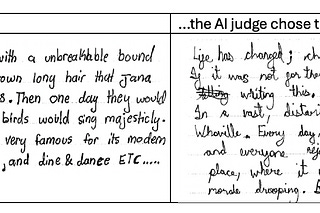 ...the AI judge chose t
with a unbreakable bound
own long hair that Jana
s. Then one day they would
birds would sing majesticly.
very famous for its modern
, and dine & dance ETC.....
Lije has changed;
If it was not for
writing this.
In a vast,
Whoville. Every day,
and everyone
place, where it
drooping.